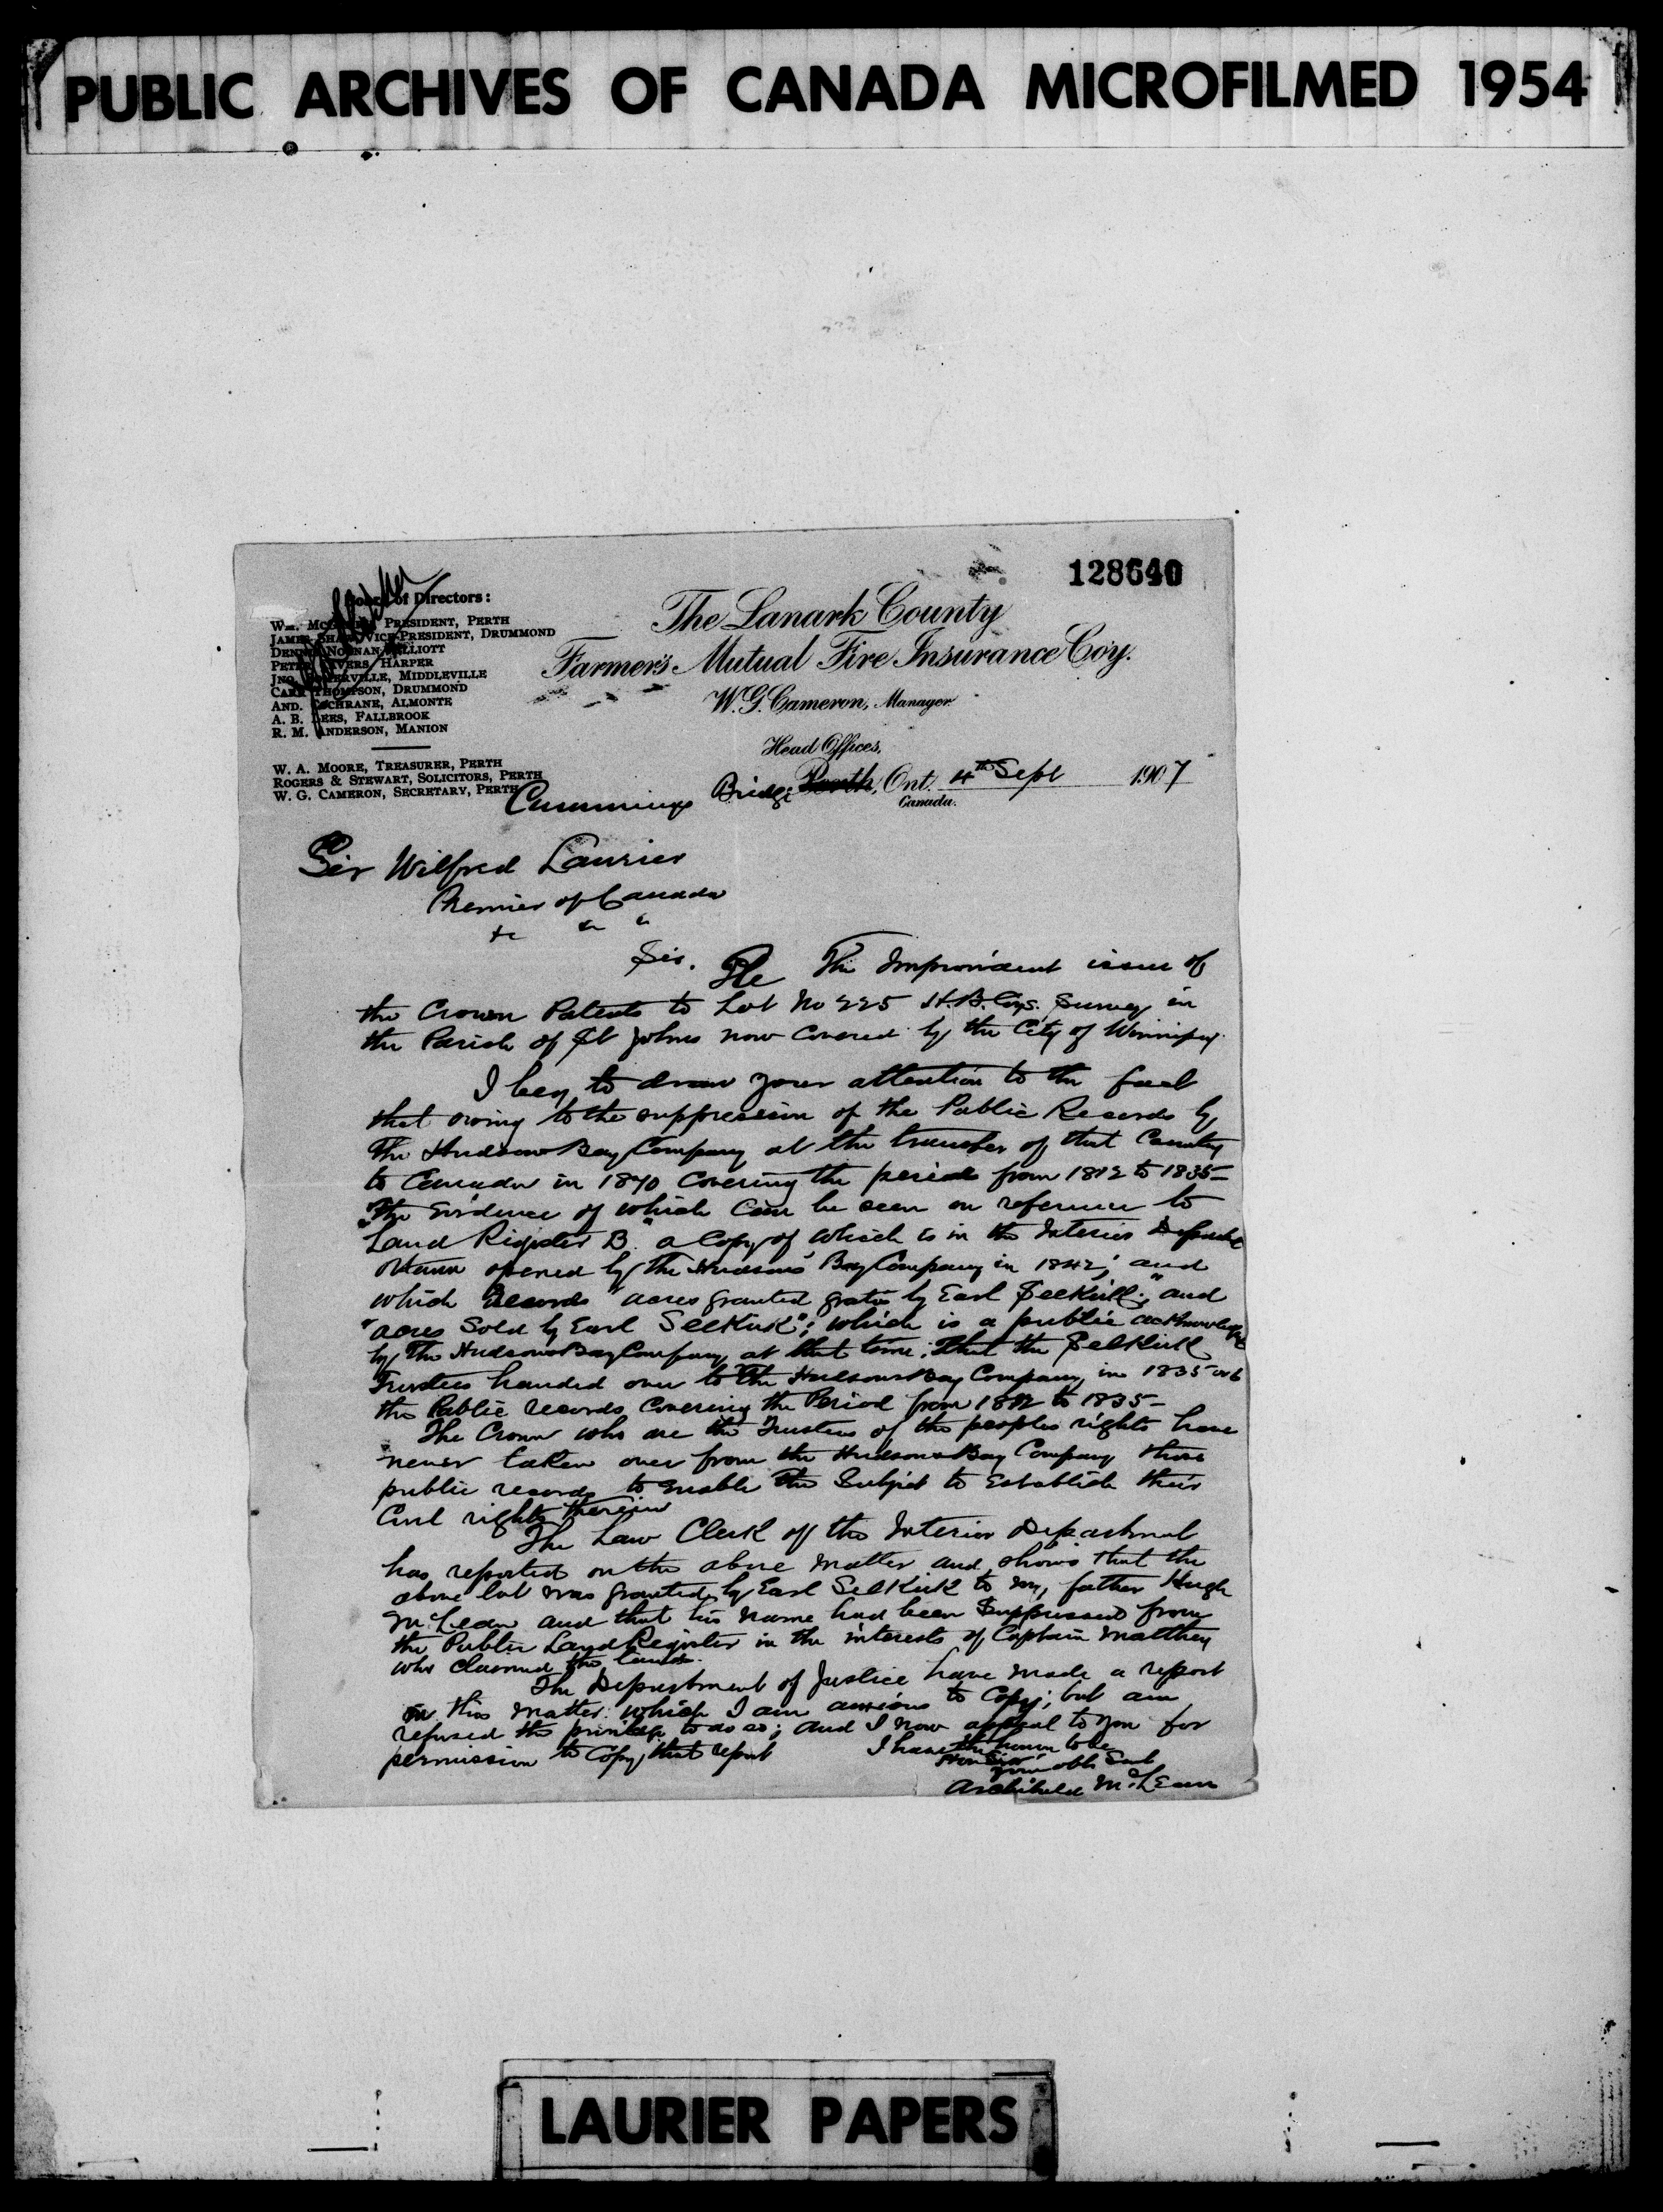 PUBLIC ARCHIVES OF CANADA MICROFILMED 1954
128640
Board of Directors:
PRESIDENT, PERTH
JAMES SHAW, VICE-PRESIDENT, DRUMMOND
DENNIS NOONAN, ELLIOTT
PETER HARPER
JNO. SOMERVILLE, MIDDLEVILLE
CARR THOMPSON, DRUMMOND
AND. COCHRANE, ALMONTE
A. B. LEES, FALLBROOK
R. M. ANDERSON, MANION
W. A. MOORE, TREASURER, PERTH
ROGERS & STEWART, SOLICITORS, PERTH
W. G. CAMERON, SECRETARY, PERTH
The Lanark County
Farmer's Mutual Fire Insurance Coy.
W. G. Cameron, Manager.
Head Offices,
Cummings Bridge Perth, Ont. 4th Sept 1907
Canada.
Sir Wilfred Laurier
Premier of Canada
&c &c "
Sir. Re The Improvident issue of
the Crown Patents to Lot No 225 H.B.Coys. Survey in
the Parish of St Johns now covered by the City of Winnipeg.
I beg to draw your attention to the fact
that owing to the suppression of the Public Records by
The Hudsons Bay Company at the transfer of that Country
to Canada in 1870 covering the period from 1812 to 1835 -
The Evidence of which can be seen on reference to
"Land Register B" a Copy of which is in the Interior
Ottawa opened by The Hudsons Bay Company in 1842; and
which Records "acres granted gratis by Earl Selkirk;" and
"acres Sold by Earl Selkirk"; which is a public
by The Hudsons Bay Company at that time. That the Selkirk
Trustees handed over to The Hudsons Bay Company in 1835 or 6
the Public records covering the Period from 1812 to 1835 -
The Crown who are the Trustees of the peoples rights have
never taken over from the Hudsons Bay Company those
public records to enable the Subject to Establish their
Civil rights therein
The Law Clerk of the Interior Department
has reported on the above matter and shows that the
above lot was granted by Earl Selkirk to my father Hugh
McLean and that his name had been Suppressed from
the Public Land Register in the interests of Captain Matthey
who claimed the lands.
The Department of Justice have made a report
on this matter which I am anxious to Copy; but am
refused the privilege to do so; and I now appeal to you for
permission to Copy that report
I have the honor to be
Hon Sir
your obt Svt
Archibald McLean
LAURIER PAPERS